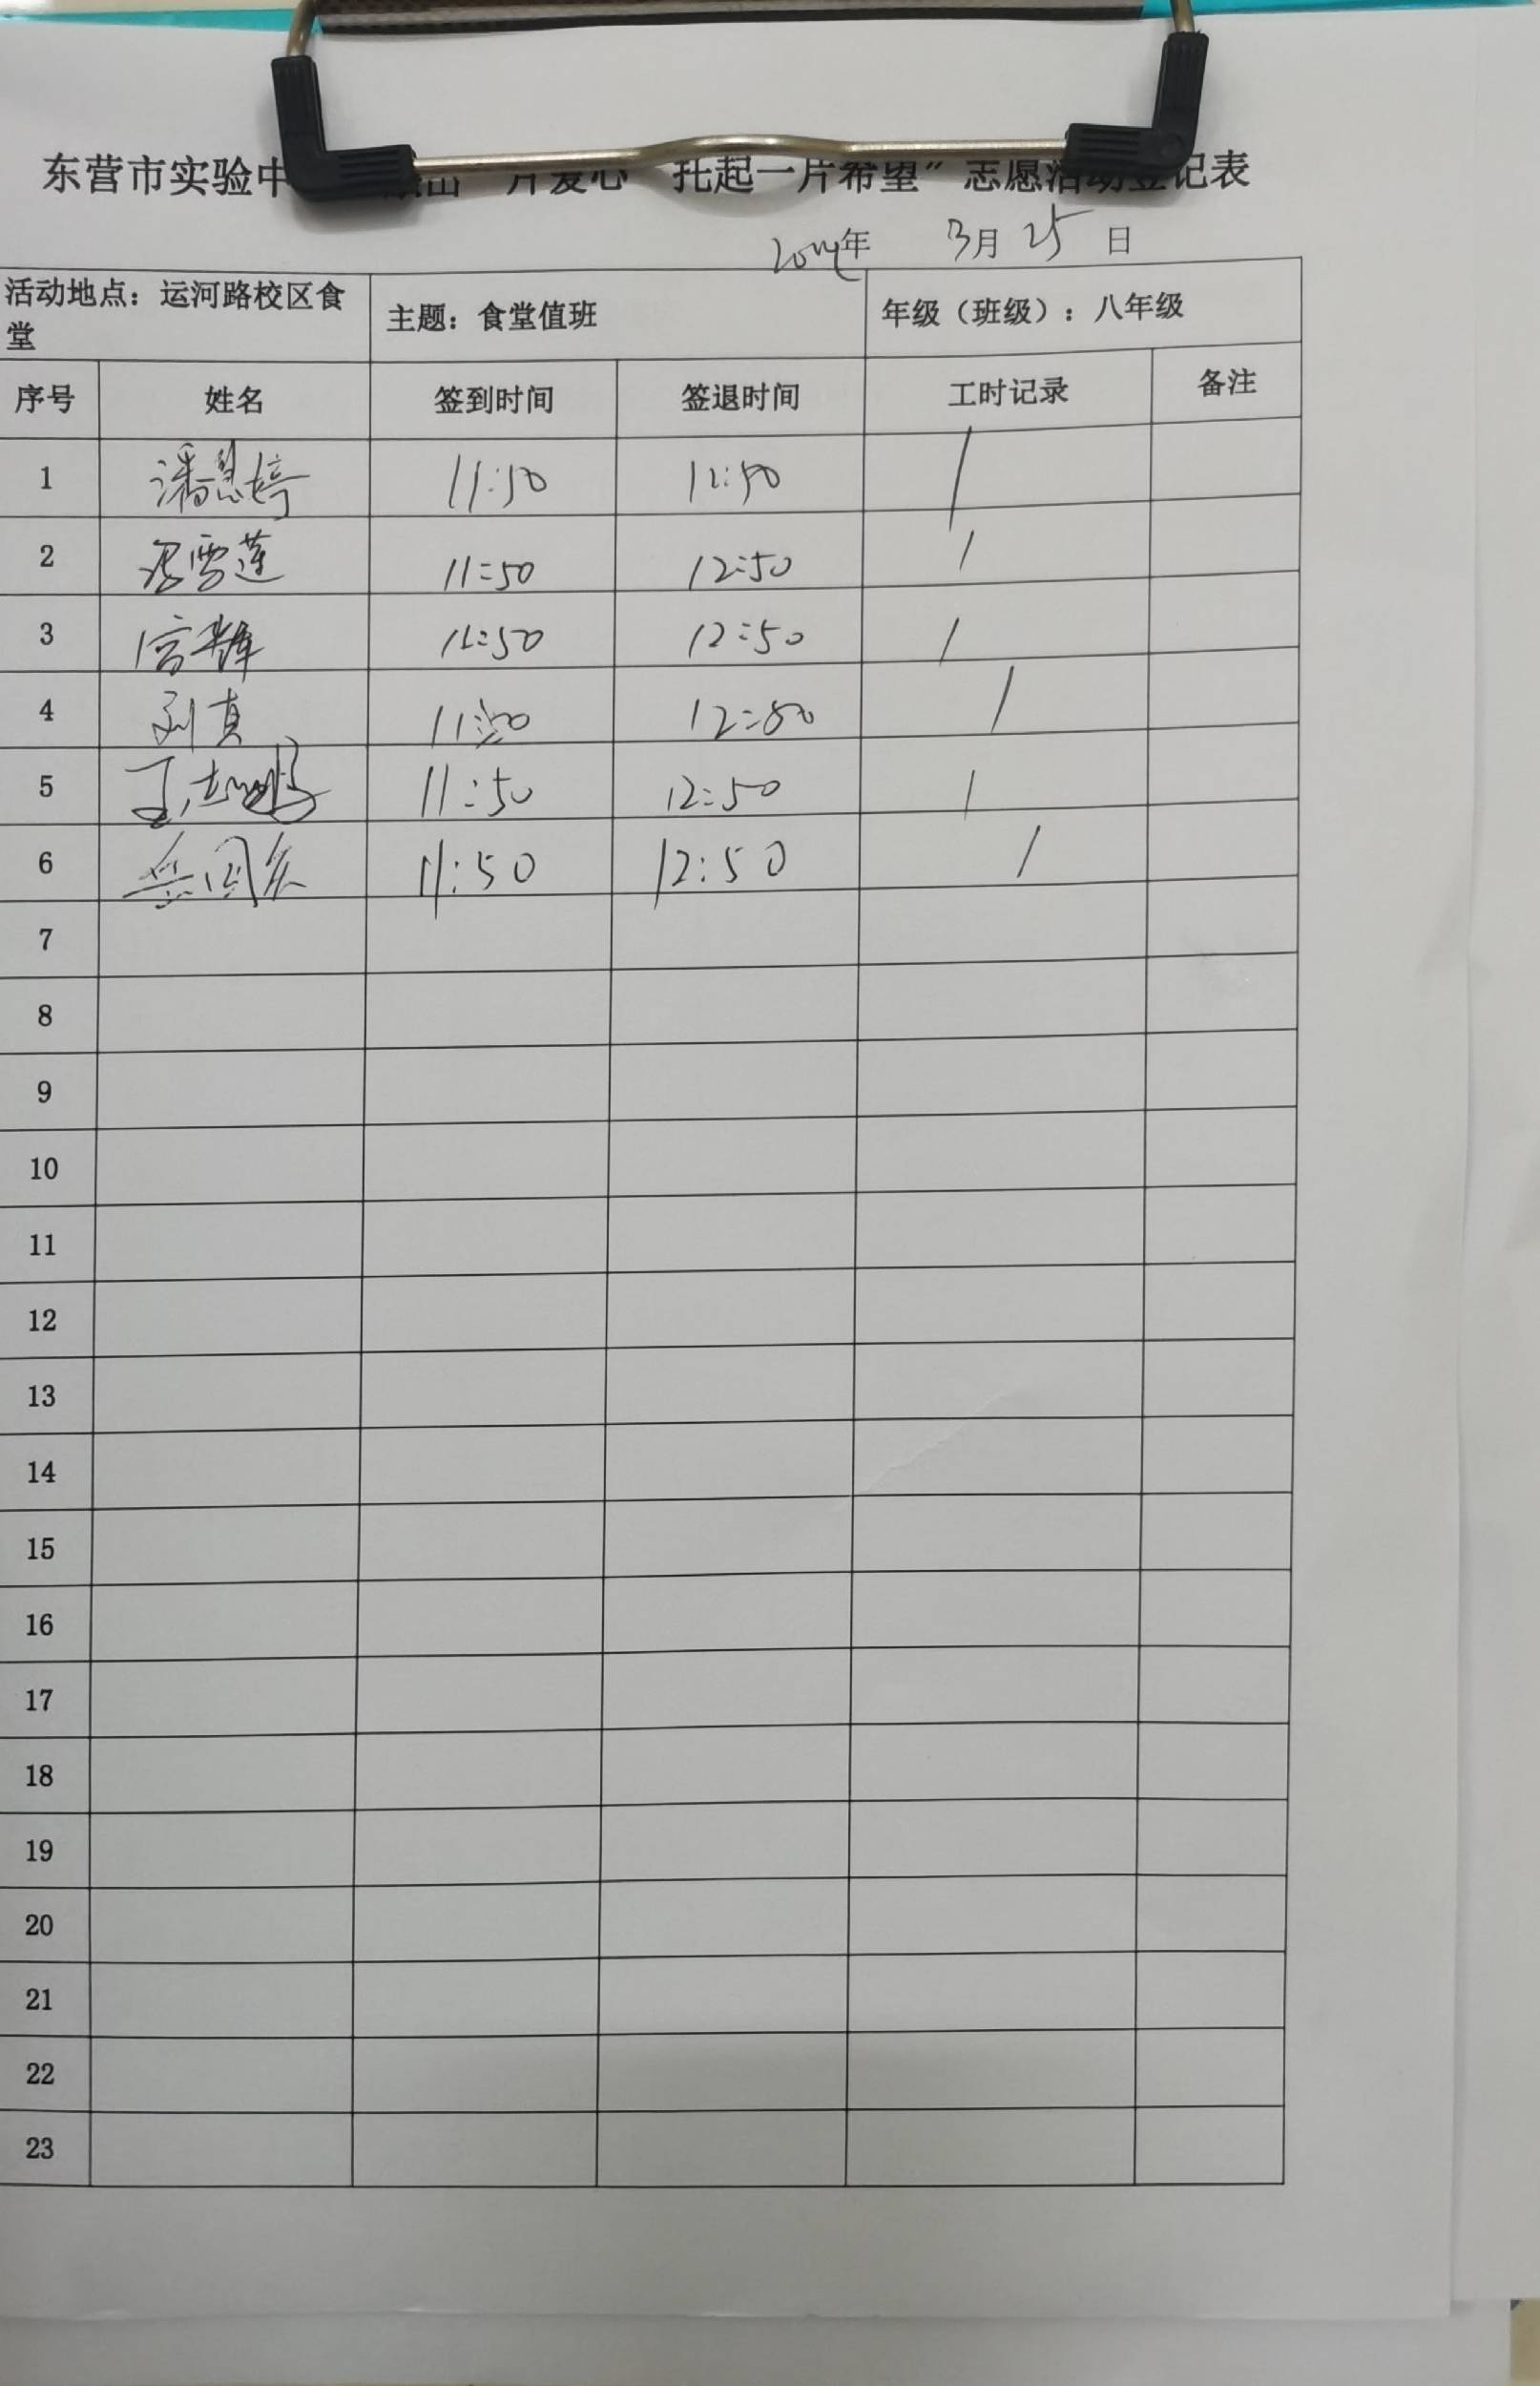 东营市实验中 片爱心 托起一片希望”志愿活动登记表
年 3月 25 日
活动地点：运河路校区食堂 主题：食堂值班 年级（班级）：八年级
序号 姓名 签到时间 签退时间 工时记录 备注
1 潘慧婷 11:50 12:50 1
2 雪莲 11:50 12:50 1
3 12:50 1
4 刘真 11:50 12:50 1
5 11:50 12:50 1
6 11:50 12:50 1
7
8
9
10
11
12
13
14
15
16
17
18
19
20
21
22
23